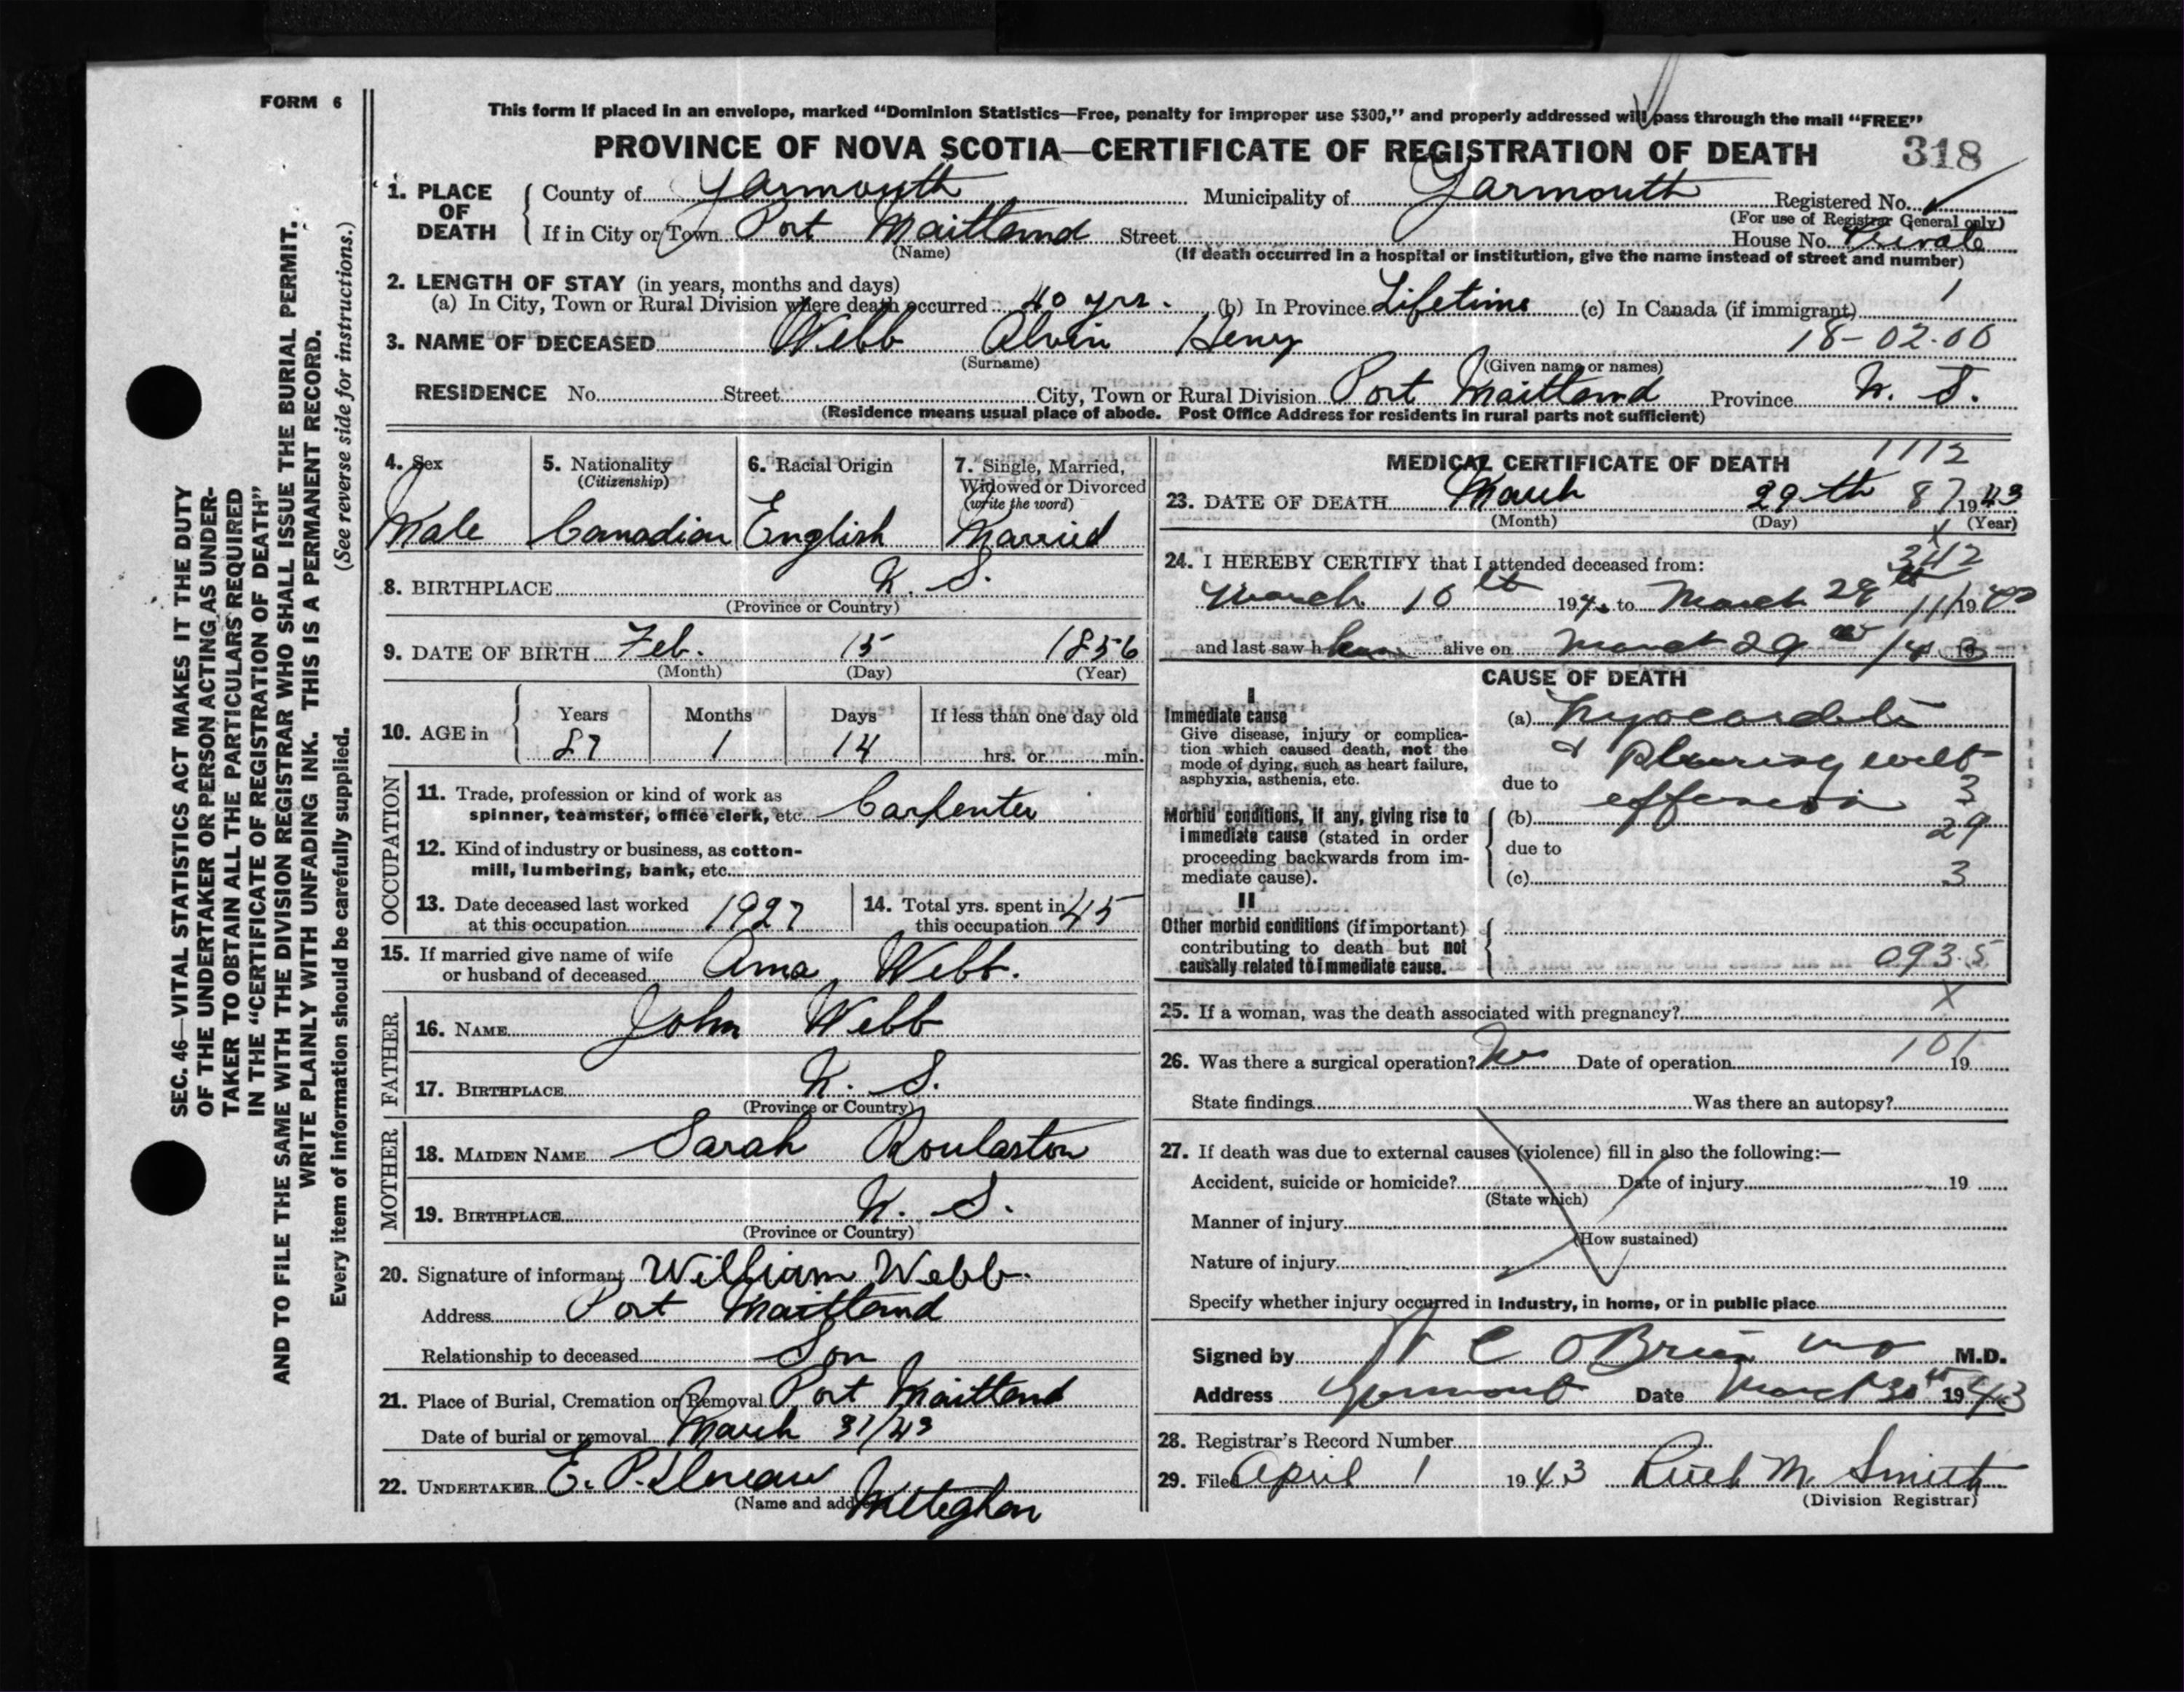 FORM 6
This form if placed in an envelope, marked “Dominion Statistics—Free, penalty for improper use $300,” and properly addressed will pass through the mail “FREE”
PROVINCE OF NOVA SCOTIA—CERTIFICATE OF REGISTRATION OF DEATH 318
1. PLACE OF DEATH
County of Yarmouth Municipality of Yarmouth Registered No.
(For use of Registrar General only)
If in City or Town Port Maitland Street House No. Private
(Name) (If death occurred in a hospital or institution, give the name instead of street and number)
2. LENGTH OF STAY (in years, months and days)
(a) In City, Town or Rural Division where death occurred 40 yrs. (b) In Province Lifetime (c) In Canada (if immigrant) 1
3. NAME OF DECEASED Webb Alvin Henry 18-02.00
(Surname) (Given name or names)
RESIDENCE No. Street City, Town or Rural Division Port Maitland Province N. S.
(Residence means usual place of abode. Post Office Address for residents in rural parts not sufficient)
4. Sex
Male
5. Nationality
(Citizenship)
Canadian
6. Racial Origin
English
7. Single, Married,
Widowed or Divorced
(write the word)
Married
8. BIRTHPLACE N. S.
(Province or Country)
9. DATE OF BIRTH Feb. 15 1856
(Month) (Day) (Year)
10. AGE in
Years Months Days If less than one day old
87 1 14 hrs. or min.
OCCUPATION
11. Trade, profession or kind of work as
spinner, teamster, office clerk, etc. Carpenter
12. Kind of industry or business, as cotton-
mill, lumbering, bank, etc.
13. Date deceased last worked
at this occupation 1927
14. Total yrs. spent in
this occupation 45
15. If married give name of wife
or husband of deceased Ama Webb.
FATHER
16. NAME John Webb
17. BIRTHPLACE N. S.
(Province or Country)
MOTHER
18. MAIDEN NAME Sarah Roulaston
19. BIRTHPLACE N. S.
(Province or Country)
20. Signature of informant William Webb.
Address Port Maitland
Relationship to deceased Son
21. Place of Burial, Cremation or Removal Port Maitland
Date of burial or removal March 31/43
22. UNDERTAKER E. P.
(Name and address) Meteghan
MEDICAL CERTIFICATE OF DEATH 1112
23. DATE OF DEATH March 29th 87 1943
(Month) (Day) (Year)
24. I HEREBY CERTIFY that I attended deceased from:
March 10 194 to March 29 19
and last saw him alive on March 29
CAUSE OF DEATH
I
Immediate cause
Give disease, injury or complica-
tion which caused death, not the
mode of dying, such as heart failure,
asphyxia, asthenia, etc.
(a) Myocarditis
& Pleurisy with
due to effusion 3
Morbid conditions, if any, giving rise to
immediate cause (stated in order
proceeding backwards from im-
mediate cause).
(b) 29
due to
(c) 3
II
Other morbid conditions (if important)
contributing to death but not
causally related to immediate cause.
093.5
25. If a woman, was the death associated with pregnancy? X
26. Was there a surgical operation? No Date of operation 101 19
State findings Was there an autopsy?
27. If death was due to external causes (violence) fill in also the following:—
Accident, suicide or homicide? Date of injury 19
(State which)
Manner of injury
(How sustained)
Nature of injury
Specify whether injury occurred in Industry, in home, or in public place
Signed by C O'Brien MD M.D.
Address Yarmouth Date March 30th 1943
28. Registrar's Record Number
29. Filed April 1 1943 Ruth M. Smith
(Division Registrar)
SEC. 46—VITAL STATISTICS ACT MAKES IT THE DUTY
OF THE UNDERTAKER OR PERSON ACTING AS UNDER-
TAKER TO OBTAIN ALL THE PARTICULARS REQUIRED
IN THE “CERTIFICATE OF REGISTRATION OF DEATH”
AND TO FILE THE SAME WITH THE DIVISION REGISTRAR WHO SHALL ISSUE THE BURIAL PERMIT.
WRITE PLAINLY WITH UNFADING INK. THIS IS A PERMANENT RECORD.
Every item of information should be carefully supplied. (See reverse side for instructions.)